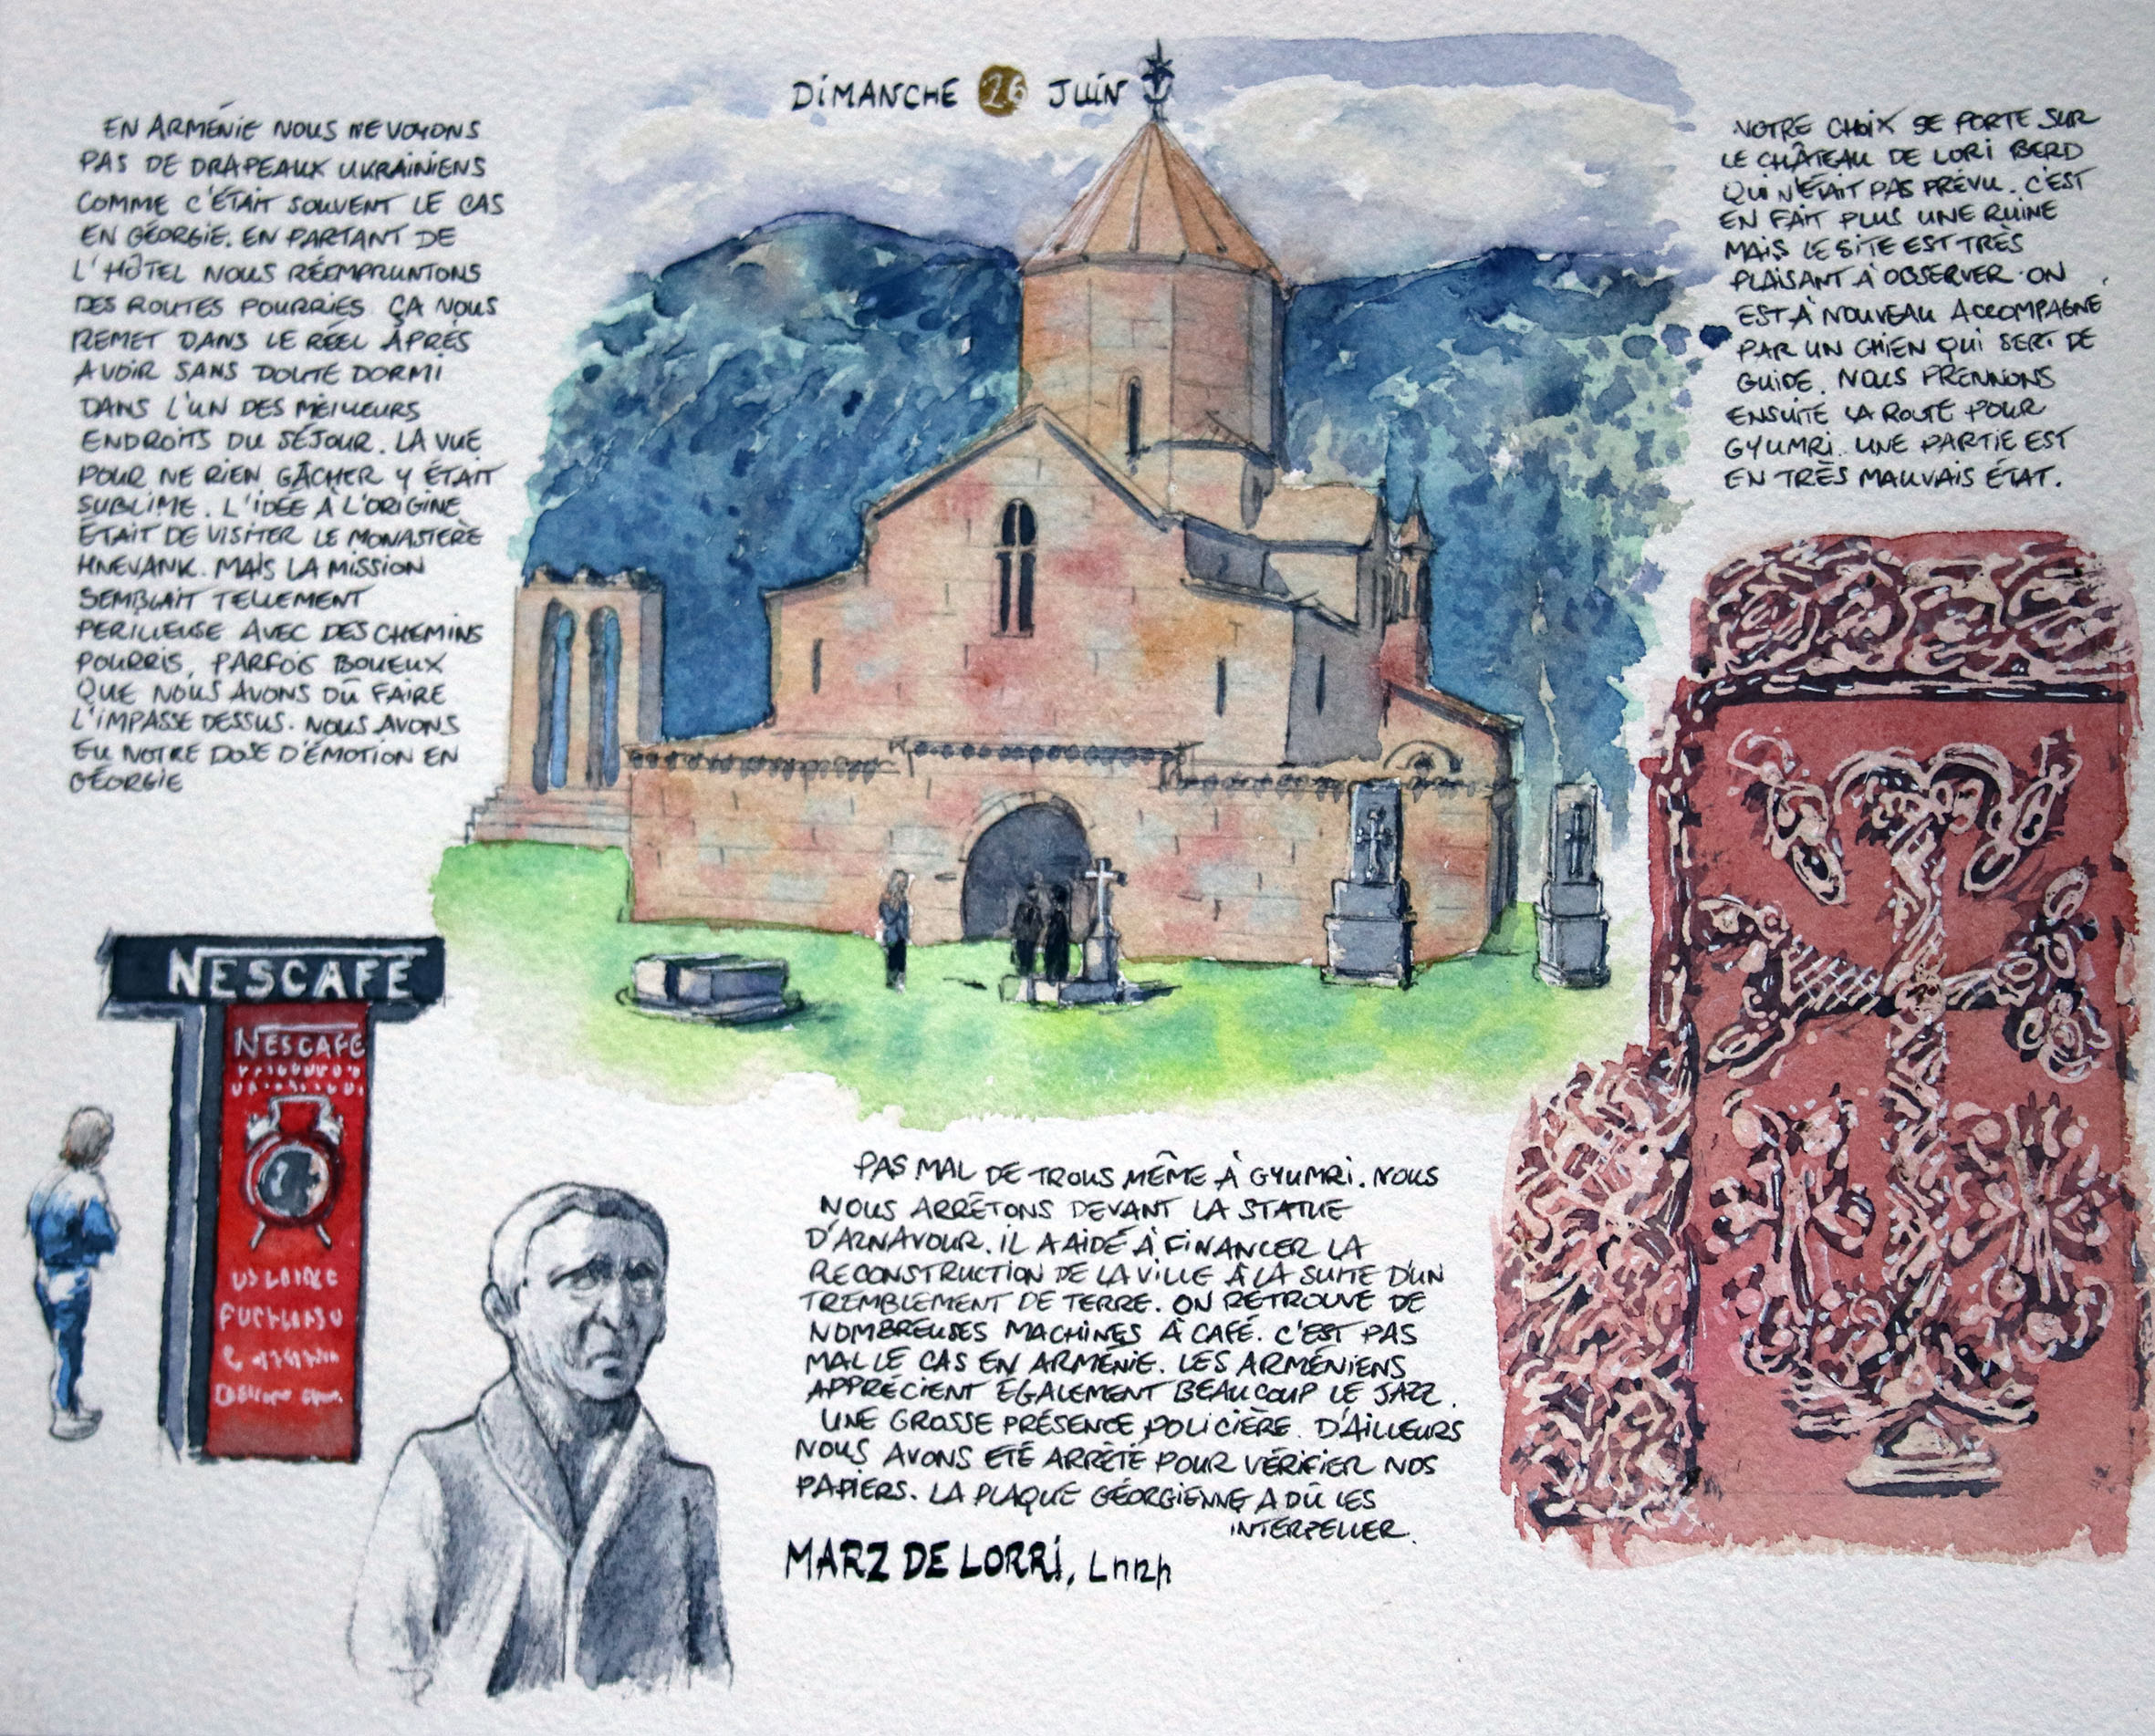 DIMANCHE 26 JUIN
EN ARMÉNIE NOUS NE VOYONS
PAS DE DRAPEAUX UKRAINIENS
COMME C'ÉTAIT SOUVENT LE CAS
EN GÉORGIE. EN PARTANT DE
L'HÔTEL NOUS RÉEMPRUNTONS
DES ROUTES POURRIES. ÇA NOUS
REMET DANS LE RÉEL APRÉS
AVOIR SANS DOUTE DORMI
DANS L'UN DES MEILLEURS
ENDROITS DU SÉJOUR. LA VUE
POUR NE RIEN GÂCHER Y ÉTAIT
SUBLIME. L'IDÉE À L'ORIGINE
ETAIT DE VISITER LE MONASTERE
HNEVANK. MAIS LA MISSION
SEMBLAIT TELLEMENT
PERILLEUSE AVEC DES CHEMINS
POURRIS, PARFOIS BOUEUX
QUE NOUS AVONS DÛ FAIRE
L'IMPASSE DESSUS. NOUS AVONS
EU NOTRE DOSE D'ÉMOTION EN
GÉORGIE
NOTRE CHOIX SE PORTE SUR
LE CHÂTEAU DE LORI BERD
QUI N'ÉTAIT PAS PRÉVU. C'EST
EN FAIT PLUS UNE RUINE
MAIS LE SITE EST TRÈS
PLAISANT À OBSERVER. ON
EST À NOUVEAU ACCOMPAGNÉ
PAR UN CHIEN QUI SERT DE
GUIDE. NOUS PRENNONS
ENSUITE LA ROUTE POUR
GYUMRI. UNE PARTIE EST
EN TRÈS MAUVAIS ÉTAT.
NESCAFÉ
NESCAFE
PAS MAL DE TROUS MÊME À GYUMRI. NOUS
NOUS ARRÊTONS DEVANT LA STATUE
D'AZNAVOUR. IL A AIDÉ À FINANCER LA
RECONSTRUCTION DE LA VILLE À LA SUITE D'UN
TREMBLEMENT DE TERRE. ON RETROUVE DE
NOMBREUSES MACHINES À CAFÉ. C'EST PAS
MAL LE CAS EN ARMÉNIE. LES ARMÉNIENS
APPRÉCIENT EGALEMENT BEAUCOUP LE JAZZ.
UNE GROSSE PRÉSENCE POLICIÈRE. D'AILLEURS
NOUS AVONS ETÉ ARRÊTÉ POUR VÉRIFIER NOS
PAPIERS. LA PLAQUE GÉORGIENNE A DÛ LES
INTERPELLER.
MARZ DE LORRI, Լոռի